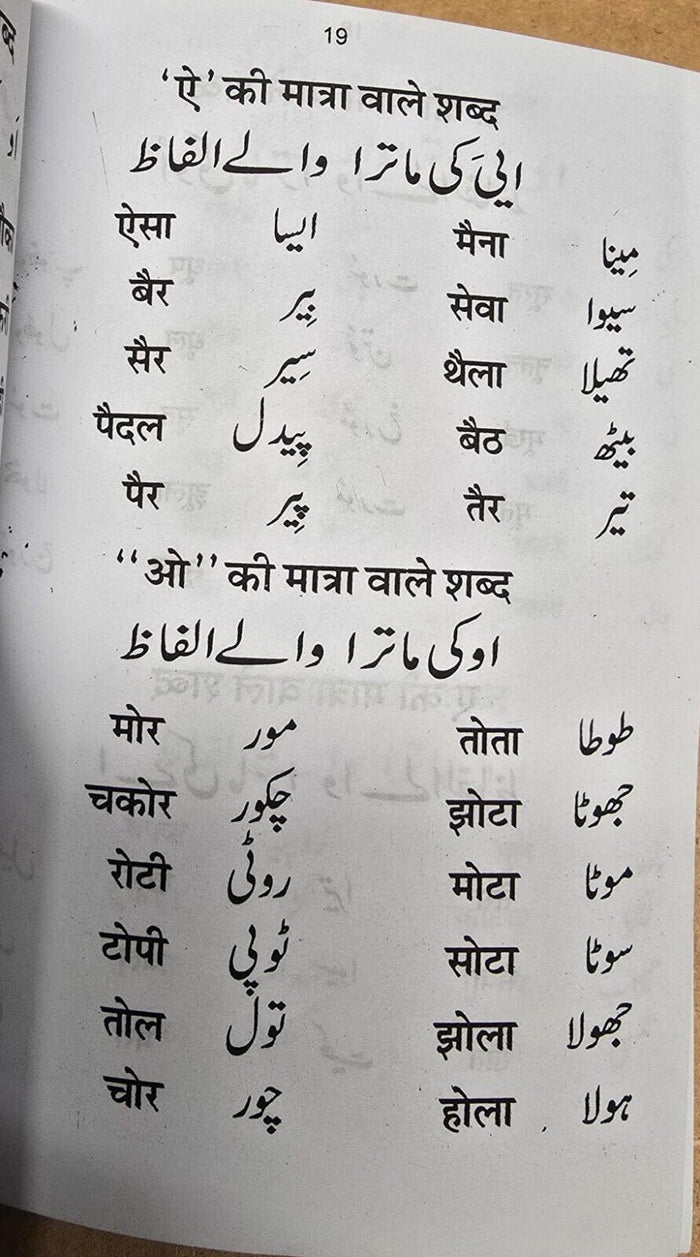 19
‘ऐ’ की मात्रा वाले शब्द
ایَی کی ماترا والے الفاظ
ऐसा ایسا मैना مِینا
बैर بِیر सेवा سیوا
सैर سِیر थैला تھیلا
पैदल پِیدل बैठ بیٹھ
पैर پِیر तैर تیر
“ओ” की मात्रा वाले शब्द
او کی ماترا والے الفاظ
मोर مور तोता طوطا
चकोर چکور झोटा جھوٹا
रोटी روٹی मोटा موٹا
टोपी ٹوپی सोटा سوٹا
तोल تول झोला جھولا
चोर چور होला ہولا